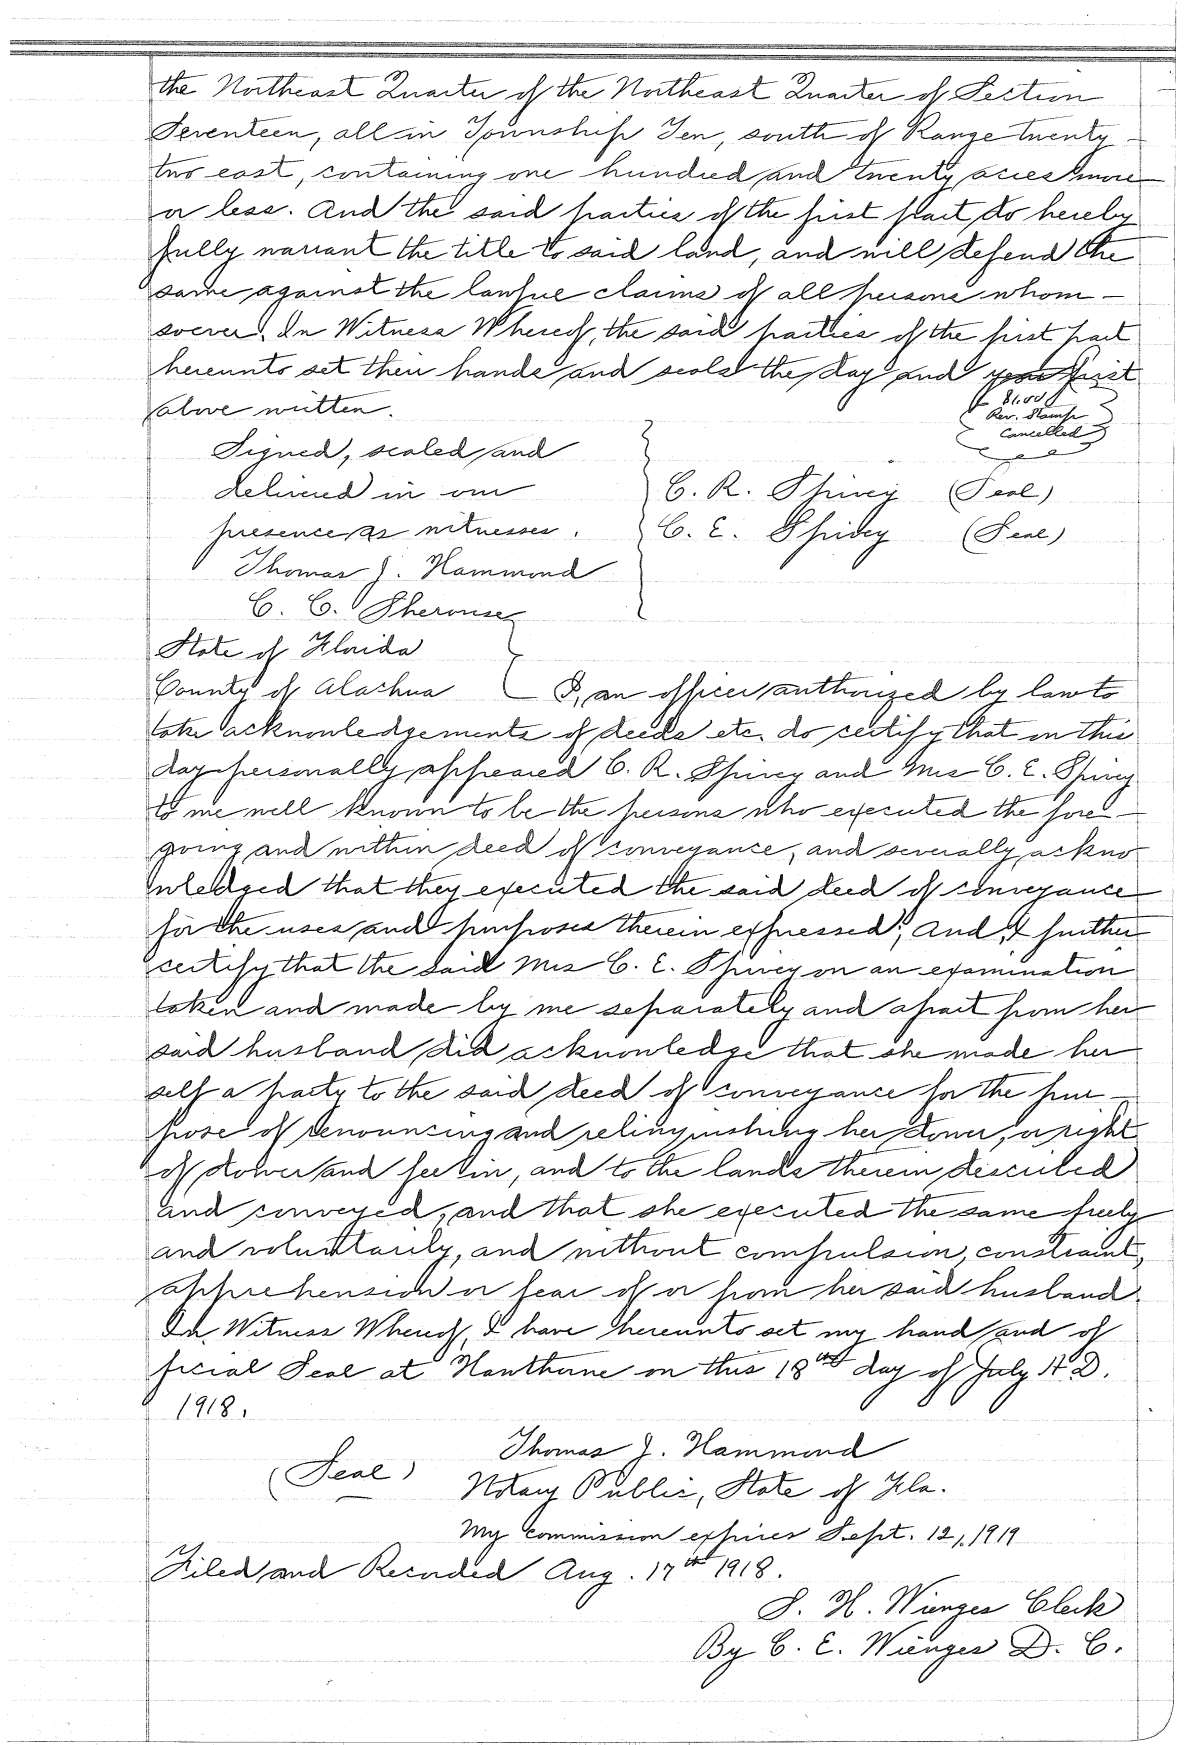 the Northeast Quarter of the Northeast Quarter of Section
Seventeen, all in Township Ten, south of Range twenty-
two east, containing one hundred and twenty acres more
or less. And the said parties of the first part do hereby
fully warrant the title to said land, and will defend the
same against the lawful claims of all persons whom-
soever. In Witness Whereof, the said parties of the first part
hereunto set their hands and seals the day and year first
above written.
$1.00
Rev. Stamp
Cancelled
Signed, sealed and
delivered in our
presence as witnesses.
Thomas J. Hammond
C. C. Sherouse
C. R. Spivey (Seal)
C. E. Spivey (Seal)
State of Florida
County of Alachua I, an officer authorized by law to
take acknowledgements of deeds etc. do certify that on this
day personally appeared C. R. Spivey and Mrs C. E. Spivey
to me well known to be the persons who executed the fore-
going and within deed of conveyance, and severally ackno
wledged that they executed the said deed of conveyance
for the uses and purposes therein expressed; And I further
certify that the said Mrs C. E. Spivey on an examination
taken and made by me separately and apart from her
said husband did acknowledge that she made her
self a party to the said deed of conveyance for the pur-
pose of renouncing and relinquishing her dower, or right
of dower and fee in, and to the lands therein described
and conveyed, and that she executed the same freely
and voluntarily, and without compulsion, constraint,
apprehension or fear of or from her said husband.
In Witness Whereof, I have hereunto set my hand and of
ficial Seal at Hawthorne on this 18th day of July A D.
1918.
Thomas J. Hammond
(Seal) Notary Public, State of Fla.
My commission expires Sept. 12, 1919
Filed and Recorded Aug. 17th 1918.
S. H. Wienges Clerk
By C. E. Wienges D. C.